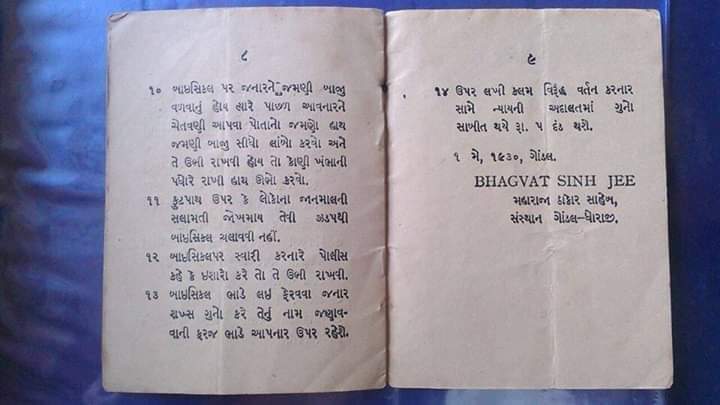 ૮
૧૦ બાઇસિકલ પર જનારને જમણી બાજુ
વળવાનું હોય ત્યારે પાછળ આવનારને
ચેતવણી આપવા પોતાનો જમણો હાથ
જમણી બાજુ સીધો લાંબો કરવો અને
તે ઉભી રાખવી હોય તો કોણી ખંભાની
પધોરે રાખી હાથ ઊભો કરવો.
૧૧ ફુટપાથ ઉપર કે લોકોના જાનમાલની
સલામતી જોખમાય તેવી ઝડપથી
બાઇસિકલ ચલાવવી નહીં.
૧૨ બાઇસિકલપર સ્વારી કરનારે પોલીસ
કહે કે ઇશારો કરે તો તે ઉભી રાખવી.
૧૩ બાઇસિકલ ભાડે લઇ ફેરવવા જનાર
શખ્સ ગુનો કરે તેનું નામ જણાવ-
વાની ફરજ ભાડે આપનાર ઉપર રહેશે.
૯
૧૪ ઉપર લખી કલમ વિરૂદ્ધ વર્તન કરનાર
સામે ન્યાયની અદાલતમાં ગુનો
સાબીત થયે રૂા. ૫ દંડ થશે.
૧ મે, ૧૯૩૦, ગોંડલ.
BHAGVAT SINH JEE
મહારાજા ઠાકોર સાહેબ,
સંસ્થાન ગોંડલ-ધોરાજી.